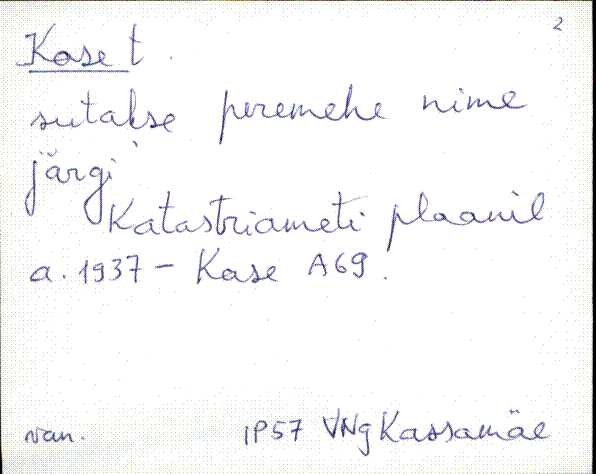 2
Kase t.
sutakse peremehe nime
järgi
Katastriameti plaanil
a. 1937 – Kase A69.
van. IP57 VNg Kassamäe